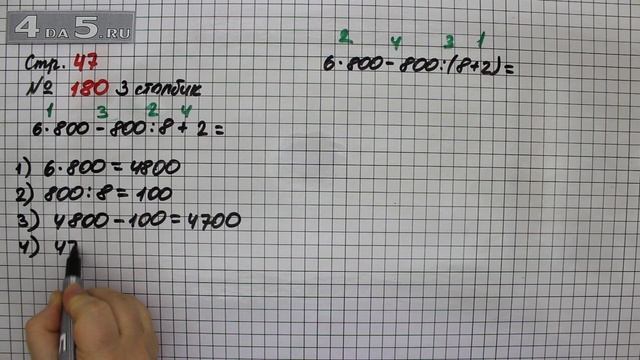 4 DA 5.RU
Стр. 47
№ 180 3 столбик
1 3 2 4
6·800-800:8+2=
1) 6·800=4800
2) 800:8=100
3) 4800-100=4700
4) 47
2 4 3 1
6·800-800:(8+2)=